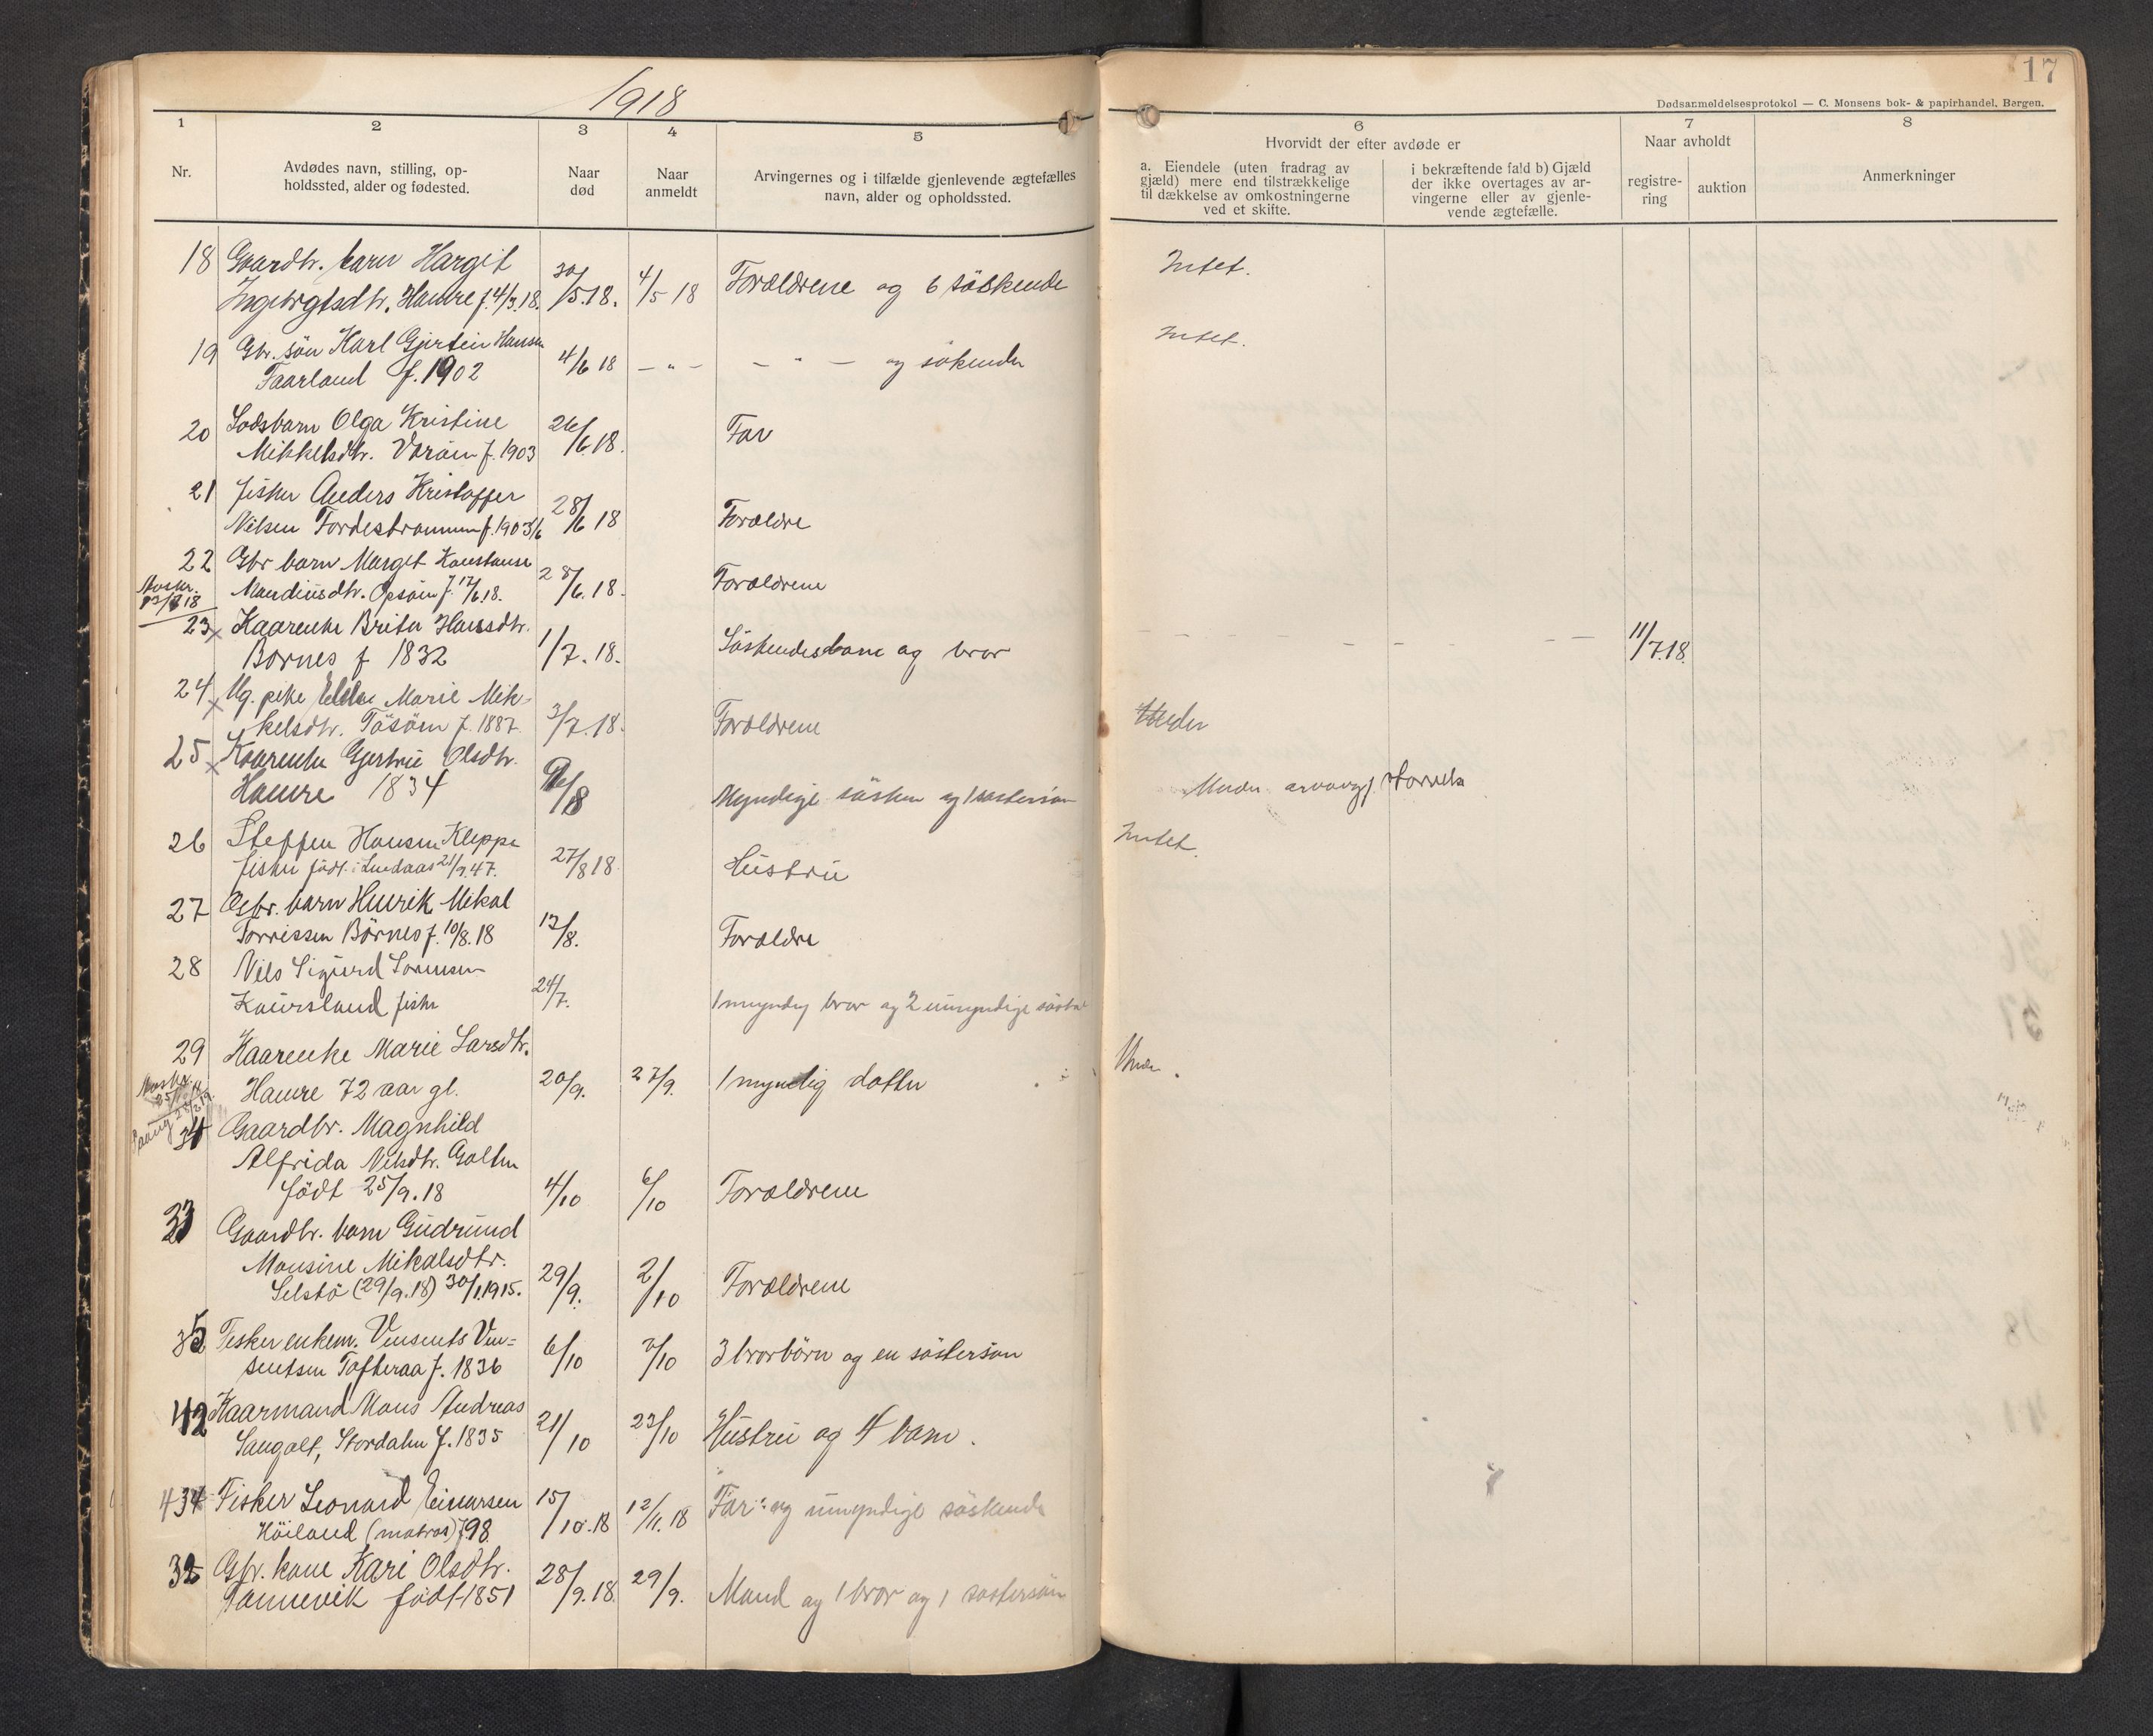 1918
17
Dødsanmeldelsesprotokol — C. Monsens bok- & papirhandel, Bergen.
1
2
3
4
5
6
7
8
Nr.
Avdødes navn, stilling, op-
holdssted, alder og fødested.
Naar
død
Naar
anmeldt
Arvingernes og i tilfælde gjenlevende ægtefælles
navn, alder og opholdssted.
Hvorvidt der efter avdøde er
a. Eiendele (uten fradrag av
gjæld) mere end tilstrækkelige
til dækkelse av omkostningerne
ved et skifte.
i bekræftende fald b) Gjæld
der ikke overtages av ar-
vingerne eller av gjenle-
vende ægtefælle.
Naar avholdt
registre-
ring
auktion
Anmerkninger
18 Gaardbr. barn Margit
Hamre f. 4/3.18. 30/5.18. 4/5 18 Forældrene og 6 søskende Intet.
19 Gbr. søn Karl Gjertin Hansen
Faarland f. 1902 4/6 18 — " — — " — og søskende Intet.
20 Losbarn Olga Kristine
Mikkelsdtr. f. 1903 26/6.18. Far
21 fisker Anders Kristoffer
Nilsen f. 1903 28/6 18 Forældre
22 Gbr barn Margit
Opsøin f. 17/6.18. 28/6.18. Forældrene
23 x Kaarenke Brita Hansdtr.
Børnes f 1832 1/7.18. Søskendebarn og bror 11/7.18.
24 x Ug. pike Marie Mik-
kelsdtr. f. 1887. 3/7.18. Forældrene Under
25 x Kaarenke Gjertrue Olsdtr.
Hamre 1834 Myndige søsken og 1 søstersøn Under
26 Steffen Hansen Kleppe
fisker født i Lindaas 21/9.47. 27/8 18. Hustru Intet.
27 Gbr. barn Henrik Mikal
Torrissen Børnes f. 10/8.18 12/8. Forældre
28 Nils Sigurd
Kaursland fisker 24/7. 1 myndig bror og 2 umyndige
29 Kaarenke Marie Larsdtr.
Hamre 72 aar gl. 20/9. 27/9. 1 myndig datter Under.
Gaardbr. Magnhild
Alfrida Nilsdtr. Golten
født 25/9.18 4/10 6/10 Forældrene
33 Gaardbr. barn Gudrund
Monsine Mikalsdtr.
Selstø (29/9.18) 30/1.1915. 29/9. 2/10 Forældrene
35 Fisker enkem. Vinsents Vin=
sentsen Tofteraa f. 1836 6/10 7/10 3 brorbørn og en søstersøn
42 Kaarmand Mons Andreas
Sangolt, Stordalen f. 1835 21/10 23/10 Hustru og 4 barn.
43 Fisker Leonard Einarsen
Høiland (matros) f 98 15/10.18 12/11.18 Far og umyndige søskende
32 Gbr. kone Kari Olsdtr.
født 1851 28/9.18. 29/9. Mand og 1 bror og 1 søstersøn